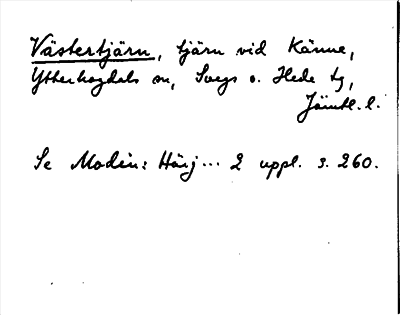 Västertjärn, tjärn vid Känne,
Ytterhogdals sn, Svegs o. Hede tg,
Jämtl. l.
Se Modin: Härj... 2 uppl. s. 260.